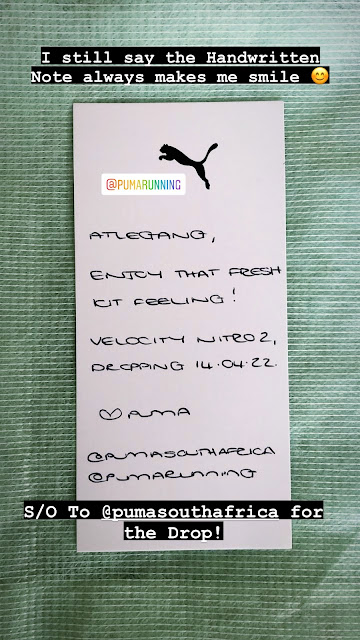 I still say the Handwritten
Note always makes me smile 😊
@PUMARUNNING
ATLEGANG,
ENJOY THAT FRESH
KIT FEELING!
VELOCITY NITRO 2,
DROPPING 14.04.22.
♡ AMA
@PUMASOUTHAFRICA
@PUMARUNNING
S/O To @pumasouthafrica for
the Drop!